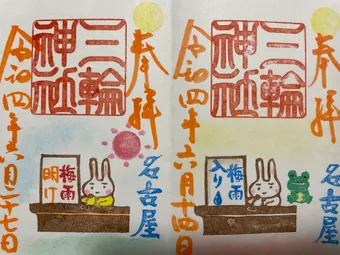 奉拝
三輪
神社
令和四年六月十四日
名古屋
梅雨
入り
奉拝
三輪
神社
令和四年六月二十七日
名古屋
梅雨
明け